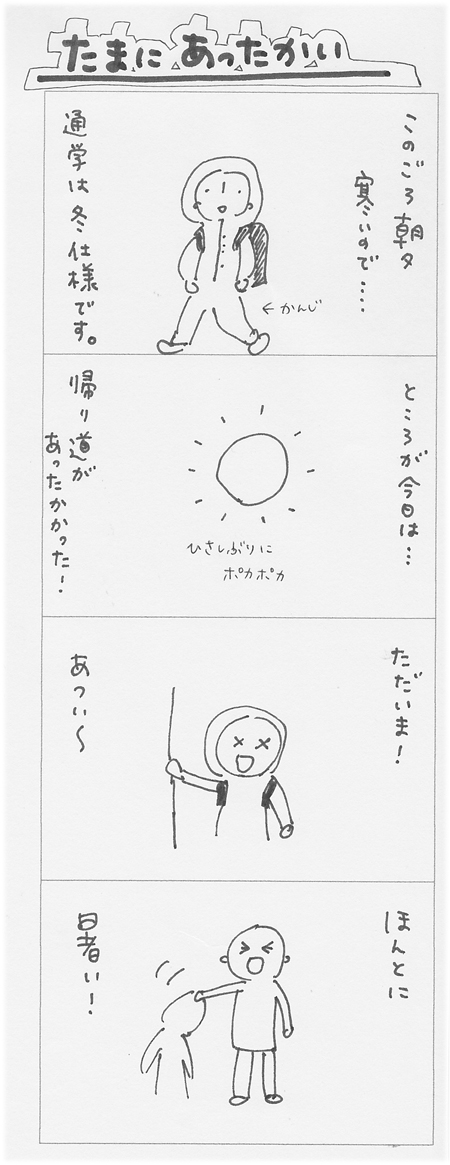 たまにあったかい
このごろ朝夕
寒いので….
通学は冬仕様です。
←かんじ
ところが今日は…
ひさしぶりに
ポカポカ
帰り道が
あったかかった！
ただいま！
あつい〜
ほんとに
暑い！